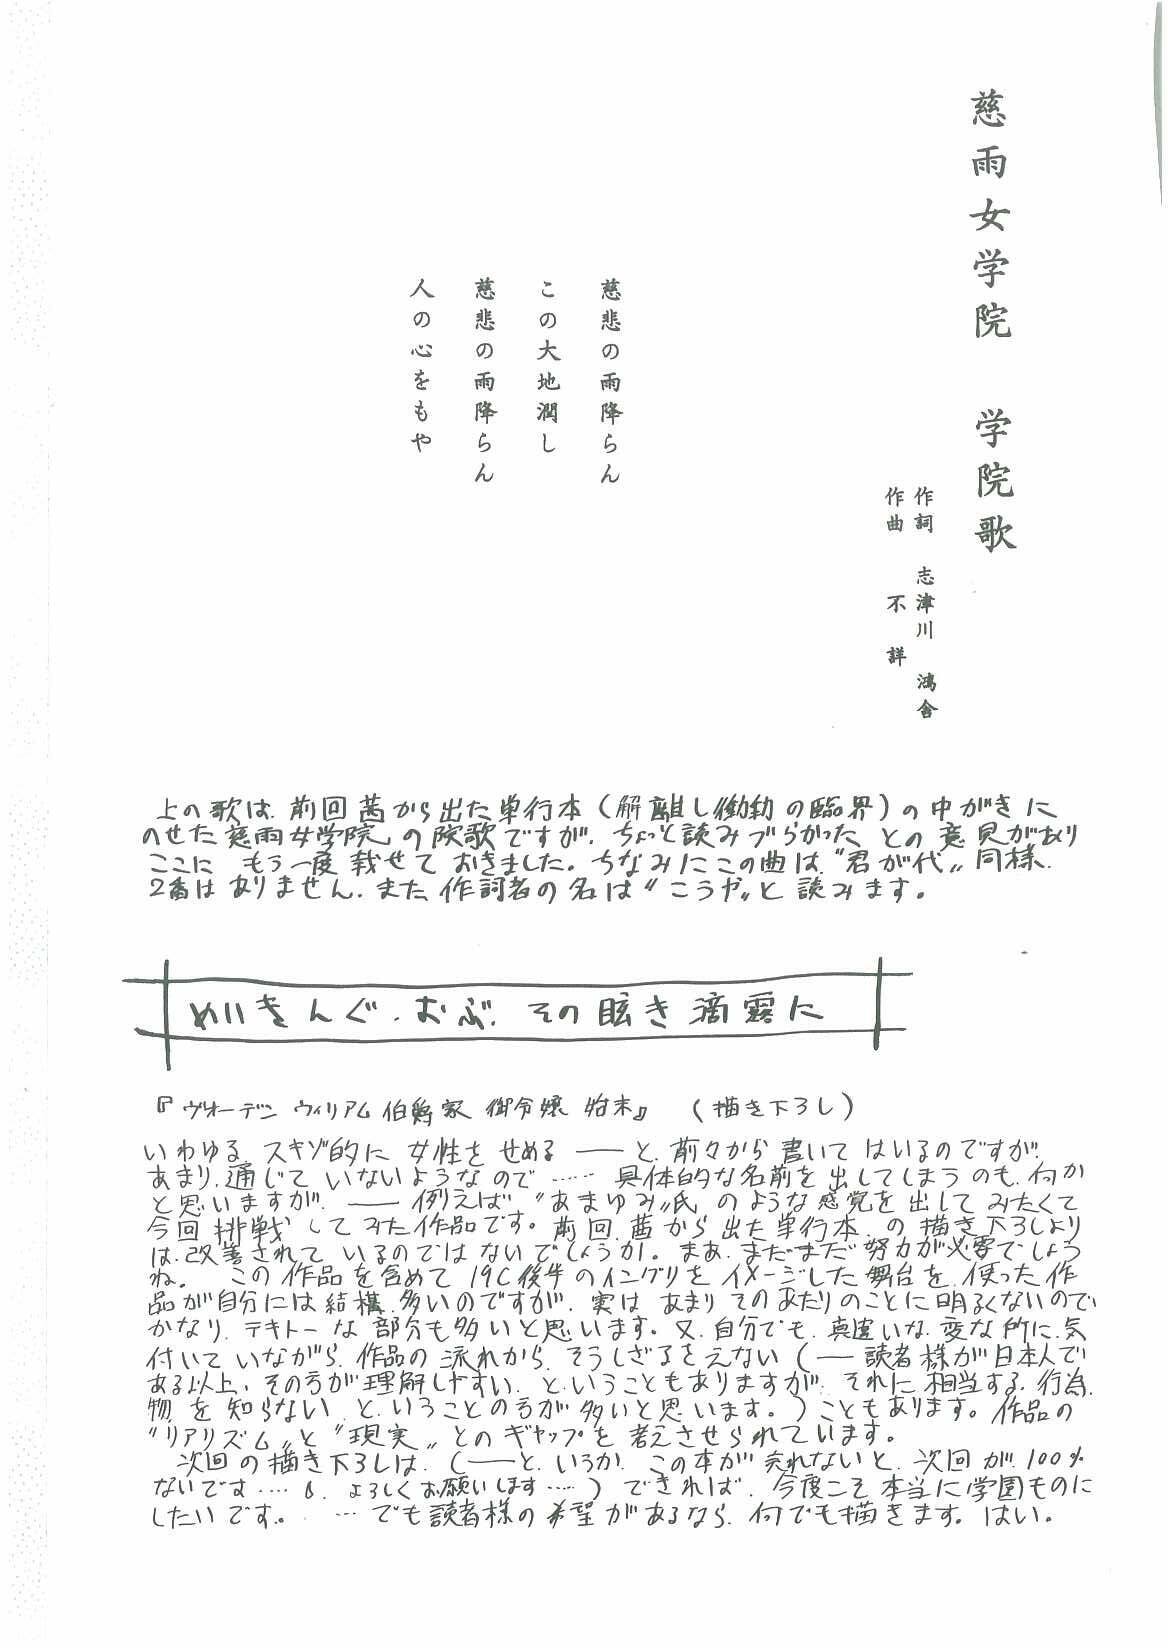 慈雨女学院　学院歌
作詞　志津川　鴻舎
作曲　不詳
慈悲の雨降らん
この大地潤し
慈悲の雨降らん
人の心をもや
上の歌は、前回茜から出た単行本（解離し慟動の臨界）の中がきに
のせた慈雨女学院の院歌ですが、ちょっと読みづらかったとの意見があり
ここにもう一度載せておきました。ちなみにこの曲は〝君が代〟同様、
2番はありません。また、作詞者の名は〝こうや〟と読みます。
めいきんぐ・おぶ、その眩き滴露に
『ヴォーデンウィリアム伯爵家御令嬢始末』（描き下ろし）
いわゆる、スキゾ的に女性をせめる――と、前々から書いてはいるのですが、
あまり、通じていないようなので……具体的な名前を出してしまうのも、何か
と思いますが、――例えば〝あまゆみ〟氏のような感覚を出してみたくて
今回挑戦してみた作品です。前回、茜から出た単行本、の描き下ろしより
は、改善されているのではないでしょうか。まあ、まだまだ努力が必要でしょう
ね。この作品を含めて19C後半のイングリをイメージした舞台を、使った作
品が自分には結構、多いのですが、実は、あまりそのあたりのことに明るくないので、
かなり、テキトーな部分も多いと思います。又、自分でも、真違いな、変な所に、気
付いていながら、作品の流れから、そうしざるをえない（――読者様が日本人で
ある以上、その方が理解しやすい、と、いうこともありますが、それに相当する、行為、
物、を知らない、と、いうことの方が多いと思います。）こともあります。作品の
〝リアリズム〟と〝現実〟とのギャップを考えさせられています。
次回の描き下ろしは、（――と、いうか、この本が売れないと、次回が、100%
ないです……、よろしくお願いします……）できれば、今度こそ本当に学園ものに
したいです。…でも読者様の希望があるなら、何でも描きます。はい。